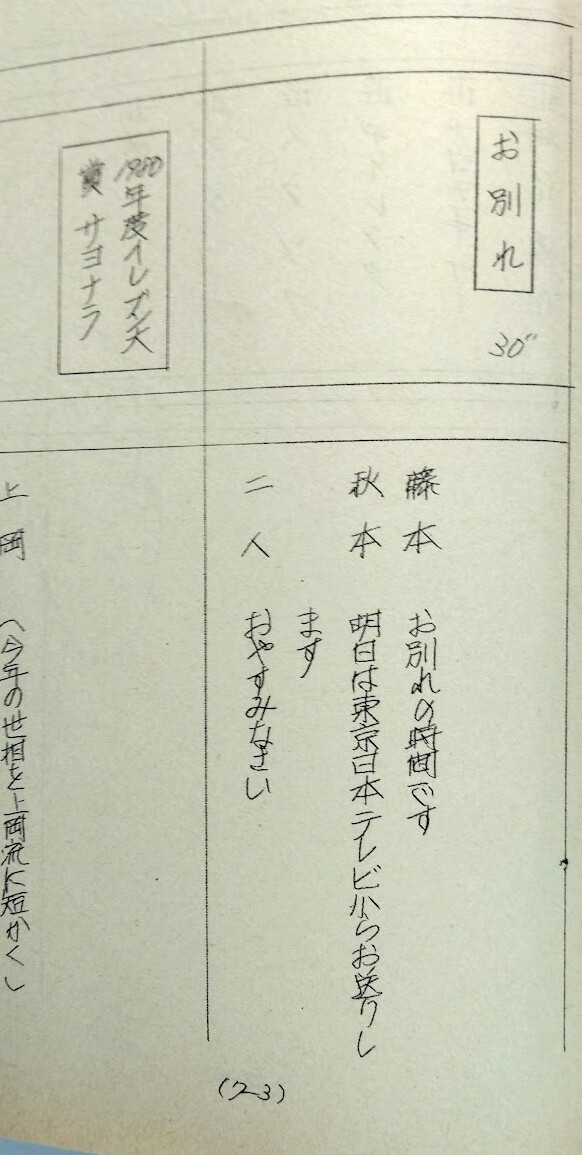 お別れ
30"
藤本　お別れの時間です
秋本　明日は東京日本テレビからお送りし
ます
二人　おやすみなさい
1980年度イレブン大
賞 サヨナラ
上岡　(今年の世相を上岡流に短かくし
(23)